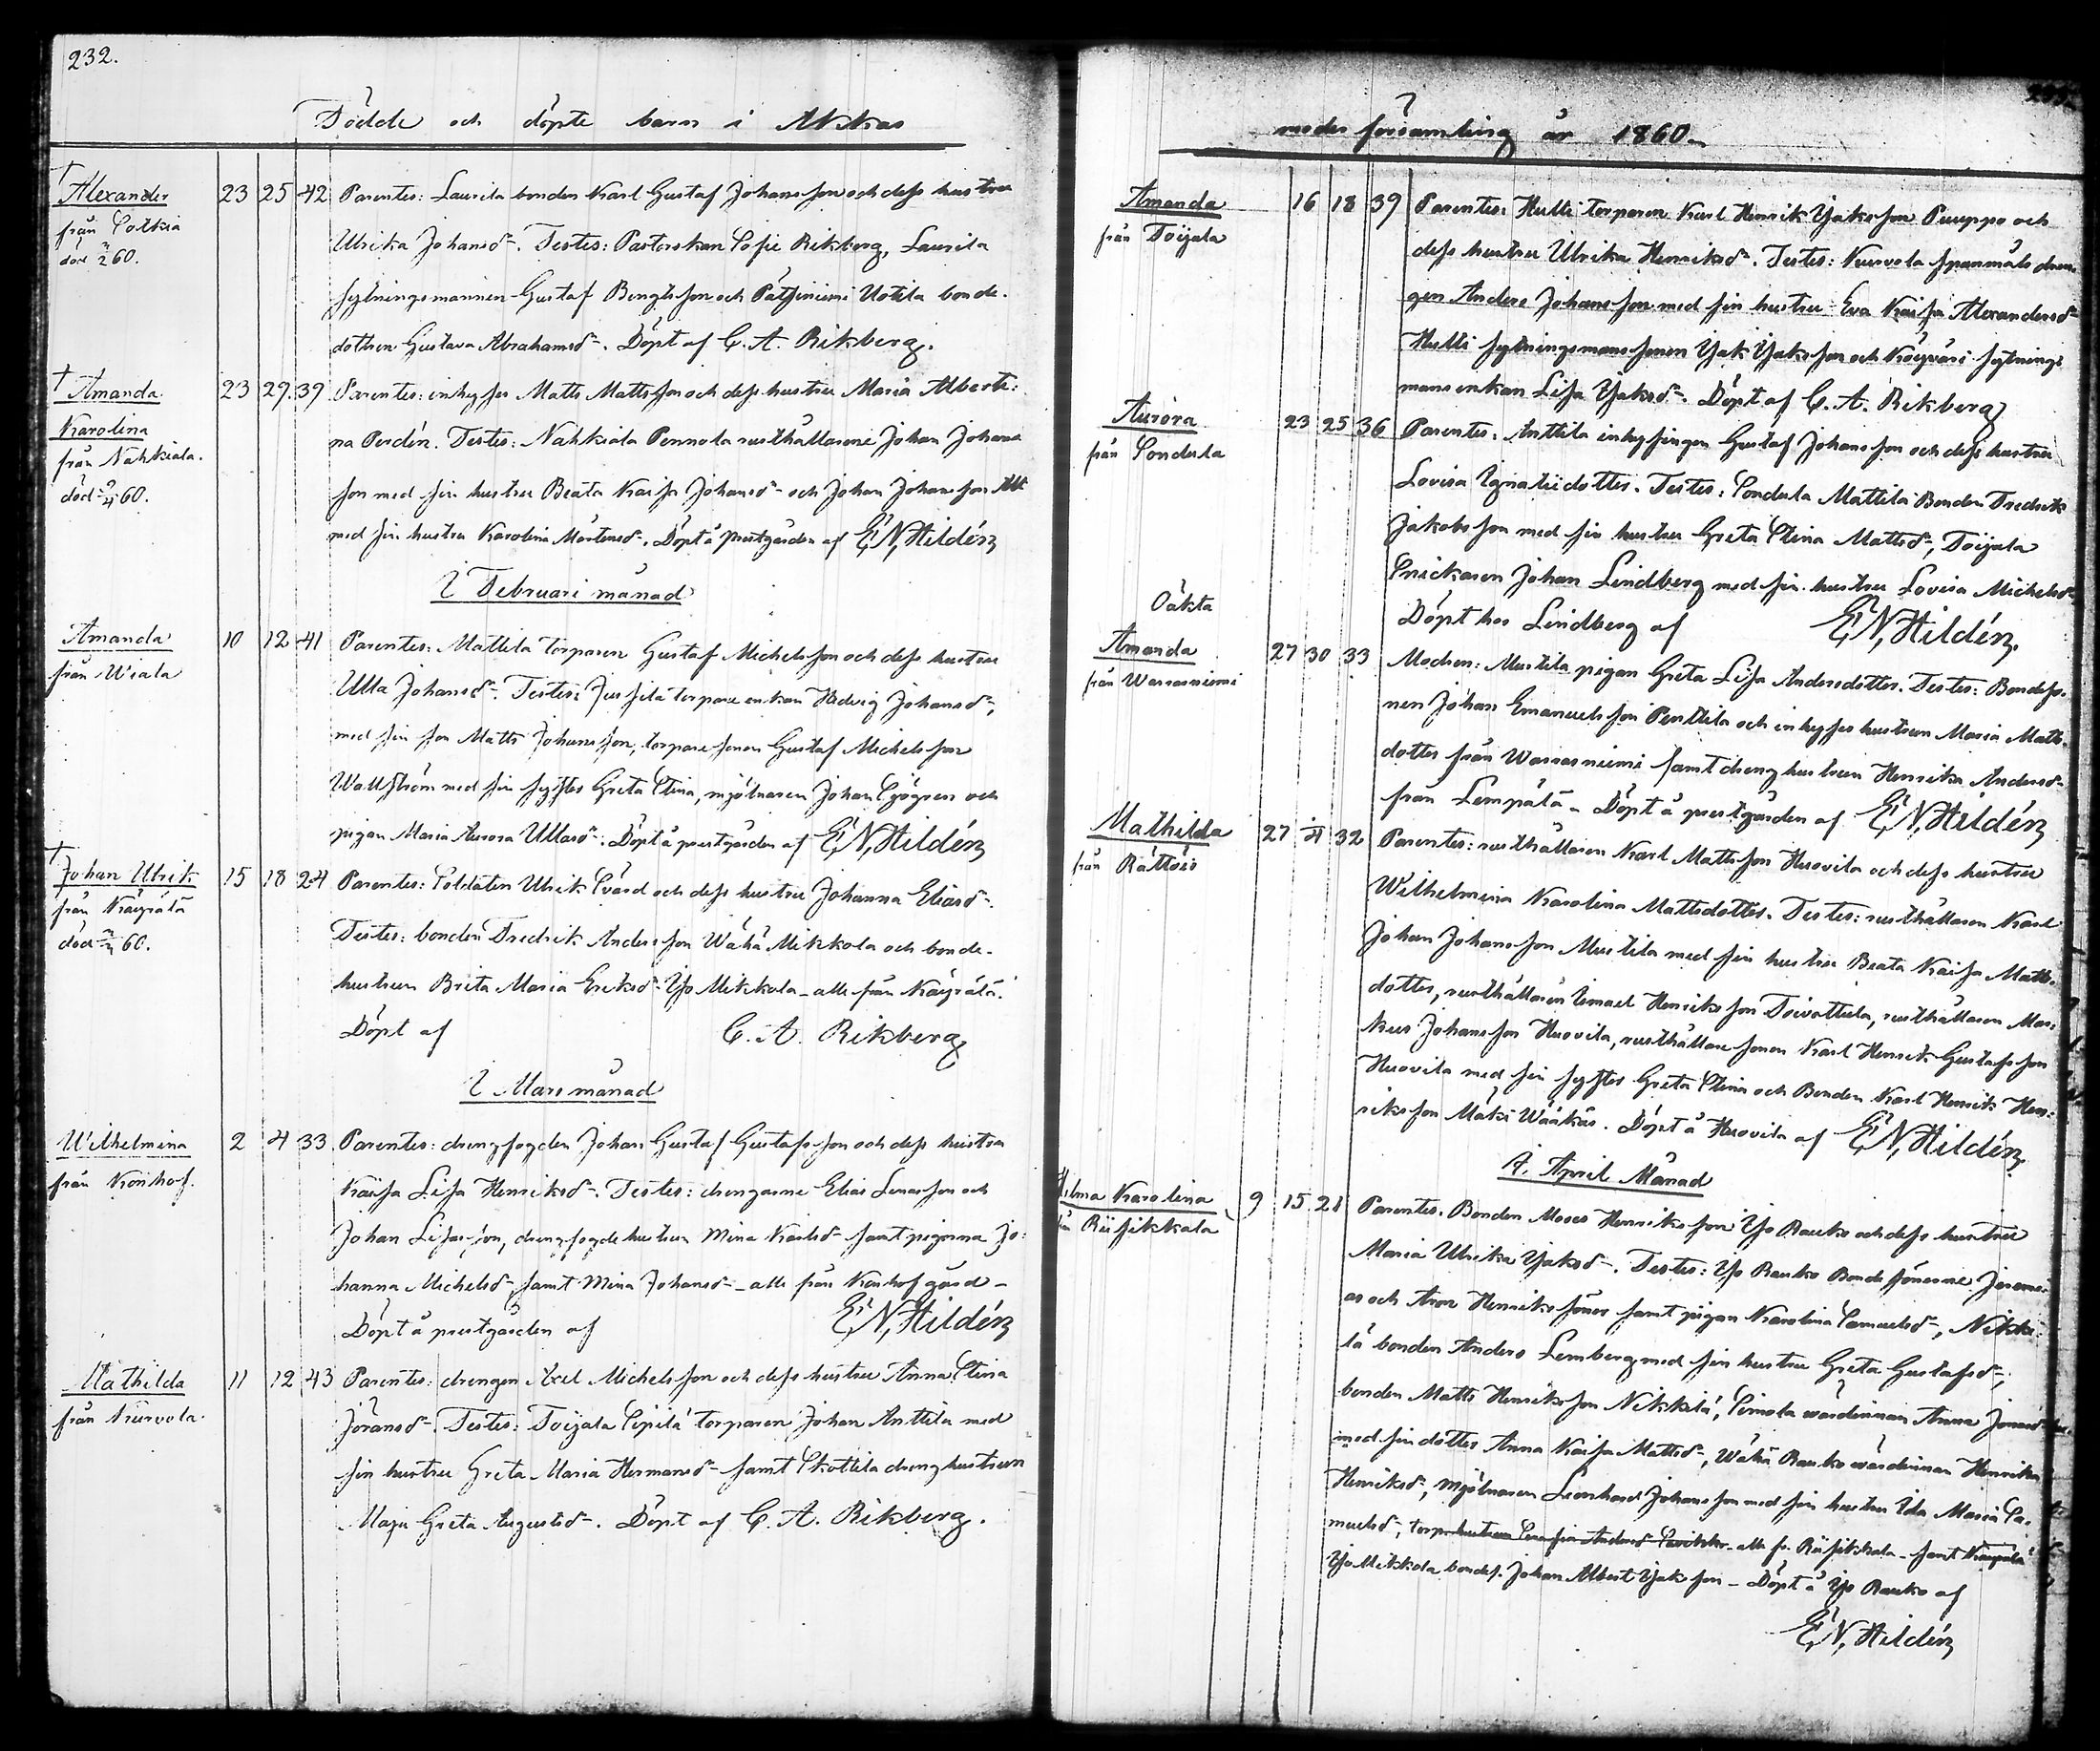 232.
Födde och döpte barn i Akkas
† Alexander
från Sotkia
död 2 60.
23 25 42
Parentes: Laurila bonden Karl Gustaf Johansson och dess hustru
Ulrika Johansdr. Testes: Pastorskan Sofie Rikberg, Laurila
sytningsmannen Gustaf Bengtsson och Pätsiniemi Uotila bonde-
dottren Gustava Abrahamsdr. Döpt af C. A. Rikberg.
† Amanda
Karolina
från Nahkiala.
död 4 60.
23 29. 39
Parentes: inhyses Matts Mattsson och dess hustru Maria Alberti-
na Perdén. Testes: Nahkiala Pennola rusthållarene Johan Johans
son med sin hustru Beata Kaisa Johansdr och Johan Johansson
med sin hustru Karolina Mårtensdr. Döpt å prestgården af E. N. Hildén
I Februari månad
Amanda
från Wiala
10 12 41
Parentes: Mattila torparen Gustaf Michelsson och dess hustru
Ulla Johansdr. Testes: Jussila torpare enkan Hedvig Johansdr,
med sin son Matts Johansson, torpare sonen Gustaf Michelsson
Wallström med sin syster Greta Stina, mjölnaren Johan Sjögren och
pigan Maria Aurora Ullasdr. Döpt å prestgården af E. N. Hildén
† Johan Ulrik
från Kägrälä
död 60.
15 18 24
Parentes: Soldaten Ulrik Svärd och dess hustru Johanna Eliasdr.
Testes: bonden Fredrik Andersson Wähä Mikkola och bonde-
hustrun Brita Maria Eriksdr Yso Mikkola – alle från Kägrälä.
Döpt af C. A. Rikberg
I Mars månad
Wilhelmina
från Konhof.
2 4 33.
Parentes: drengfogden Johan Gustaf Gustafsson och dess hustru
Kaisa Lisa Henriksdr. Testes: drengarne Elias Lenasson och
Johan Lisasson, drengfogde hustrun Mina Karlsdr samt pigorna Jo-
hanna Michelsdr samt Mina Johansdr – alle från Konhof gård –
Döpt å prestgården af E. N. Hildén
Mathilda
från Kurvola.
11 12 43
Parentes: drengen Axel Michelsson och dess hustru Anna Stina
Jöransdr. Testes: Toijala Sipilä torparen Johan Anttila med
sin hustru Greta Maria Hermansdr samt Skottila drenghustrun
Maja Greta Augustsdr. Döpt af C. A. Rikberg.
moder församling år 1860.
Amanda
från Toijala
16 18 39
Parentes: Hulli torparen Karl Henrik Isaksson Puuppo och
dess hustru Ulrika Henriksdr. Testes: Kurvola spanmåls dren-
gen Anders Johansson med sin hustru Eva Kaisa Alexandersdr
Hulli sytningsmans sonen Isak Isaksson och sytnings
mans enkan Lisa Isaksdr. Döpt af C. A. Rikberg
Aurora
från Sondula
23 25 36
Parentes: Anttila inhysingen Gustaf Johansson och dess hustru
Lovisa Ignatiidotter. Testes: Sondula Mattila Bonden Fredrik
Jakobsson med sin hustru Greta Stina Mattsdr, Toijala
Snickaren Johan Lindberg med sin hustru Lovisa Michelsdr
Döpt hos Lindberg af E. N. Hildén.
Oäkta
Amanda
från Warrasniemi
27 30 33
Modren: Mustila pigan Greta Lisa Andersdotter. Testes: Bondeso-
nen Johan Emanuelsson Penttila och inhyses hustrun Maria Matts-
dotter från Warrasniemi samt dreng hustrun Henrika Andersdr
från Lempälä – Döpt å prestgården af E. N. Hildén
Mathilda
från Rättöis
27 4 32
Parentes: rusthållaren Karl Mattsson Huovila och dess hustru
Wilhelmina Karolina Mattsdotter. Testes: rusthållaren Karl
Johan Johansson Mustila med sin hustru Beata Kaisa Matts-
dotter, rusthållaren Ismael Henriksson Toivottula, rusthållaren Mar-
kus Johansson Huovila, rusthållare sonen Karl Henrik Gustafsson
Huovila med sin syster Greta Stina och Bonden Karl Henrik Hen-
riksson Mäki Wääkäs. Döpt å Huovila af E. N. Hildén
I. April Månad
Hilma Karolina
från Riisikkala
9 15 21
Parentes. Bonden Moses Henriksson Yso Rauko och dess hustru
Maria Ulrika Isaksdr. Testes: Yso Rauko Bondesönerne Jeremi-
as och Aron Henrikssöner samt pigan Karolina Samuelsdr, Nikki-
lä bonden Anders Lemberg med sin hustru Greta Gustafsdr,
bonden Matts Henriksson Nikkilä, Simola värdinnan Anna Jonasdr
med sin dotter Anna Kaisa Mattsdr, Wähä Rauko värdinnan Henrika
Henriksdr, mjölnaren Leonhard Johansson med sin hustru Ida Maria Sa-
muelsdr, torparhustrun Serafia Andersdr – alle fr. Riisikkala – samt Kägrälä
Yso Mikkola bondes. Johan Albert Isaksson – Döpt å Yso Rauko af
E. N. Hildén